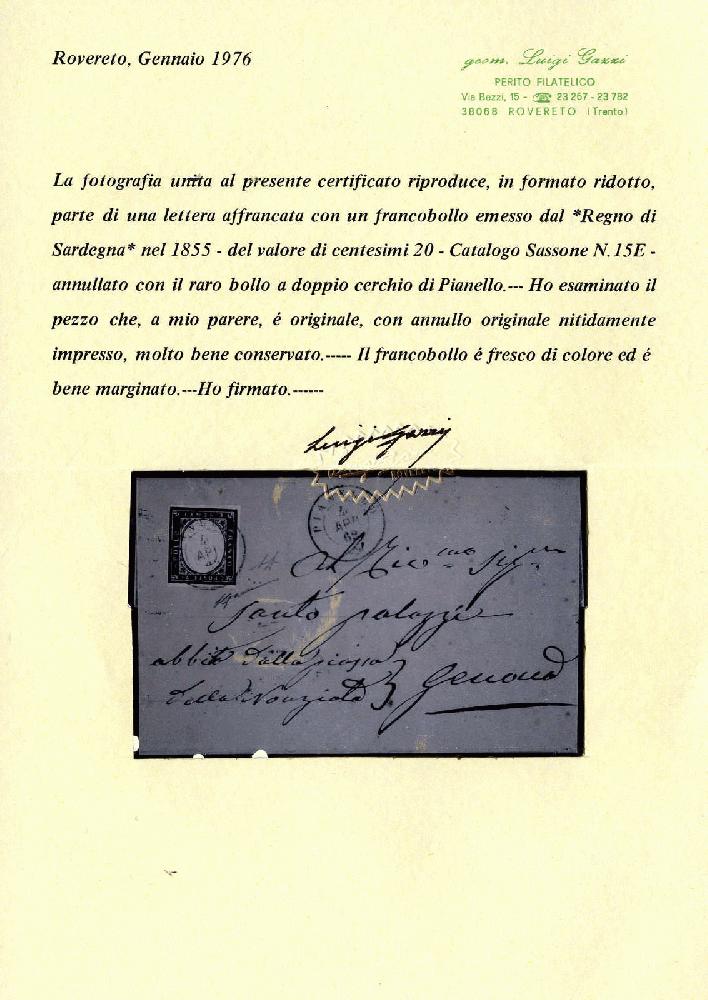 Rovereto, Gennaio 1976
geom. Luigi Gazzi
PERITO FILATELICO
Via Bezzi, 15 - ☎ 23 267 - 23 782
38068 ROVERETO (Trento)
La fotografia unita al presente certificato riproduce, in formato ridotto,
parte di una lettera affrancata con un francobollo emesso dal *Regno di
Sardegna* nel 1855 - del valore di centesimi 20 - Catalogo Sassone N.15E -
annullato con il raro bollo a doppio cerchio di Pianello.--- Ho esaminato il
pezzo che, a mio parere, é originale, con annullo originale nitidamente
impresso, molto bene conservato.----- Il francobollo é fresco di colore ed é
bene marginato.---Ho firmato.------
Luigi Gazzi
APR
Santo
abbita dalla
Genova